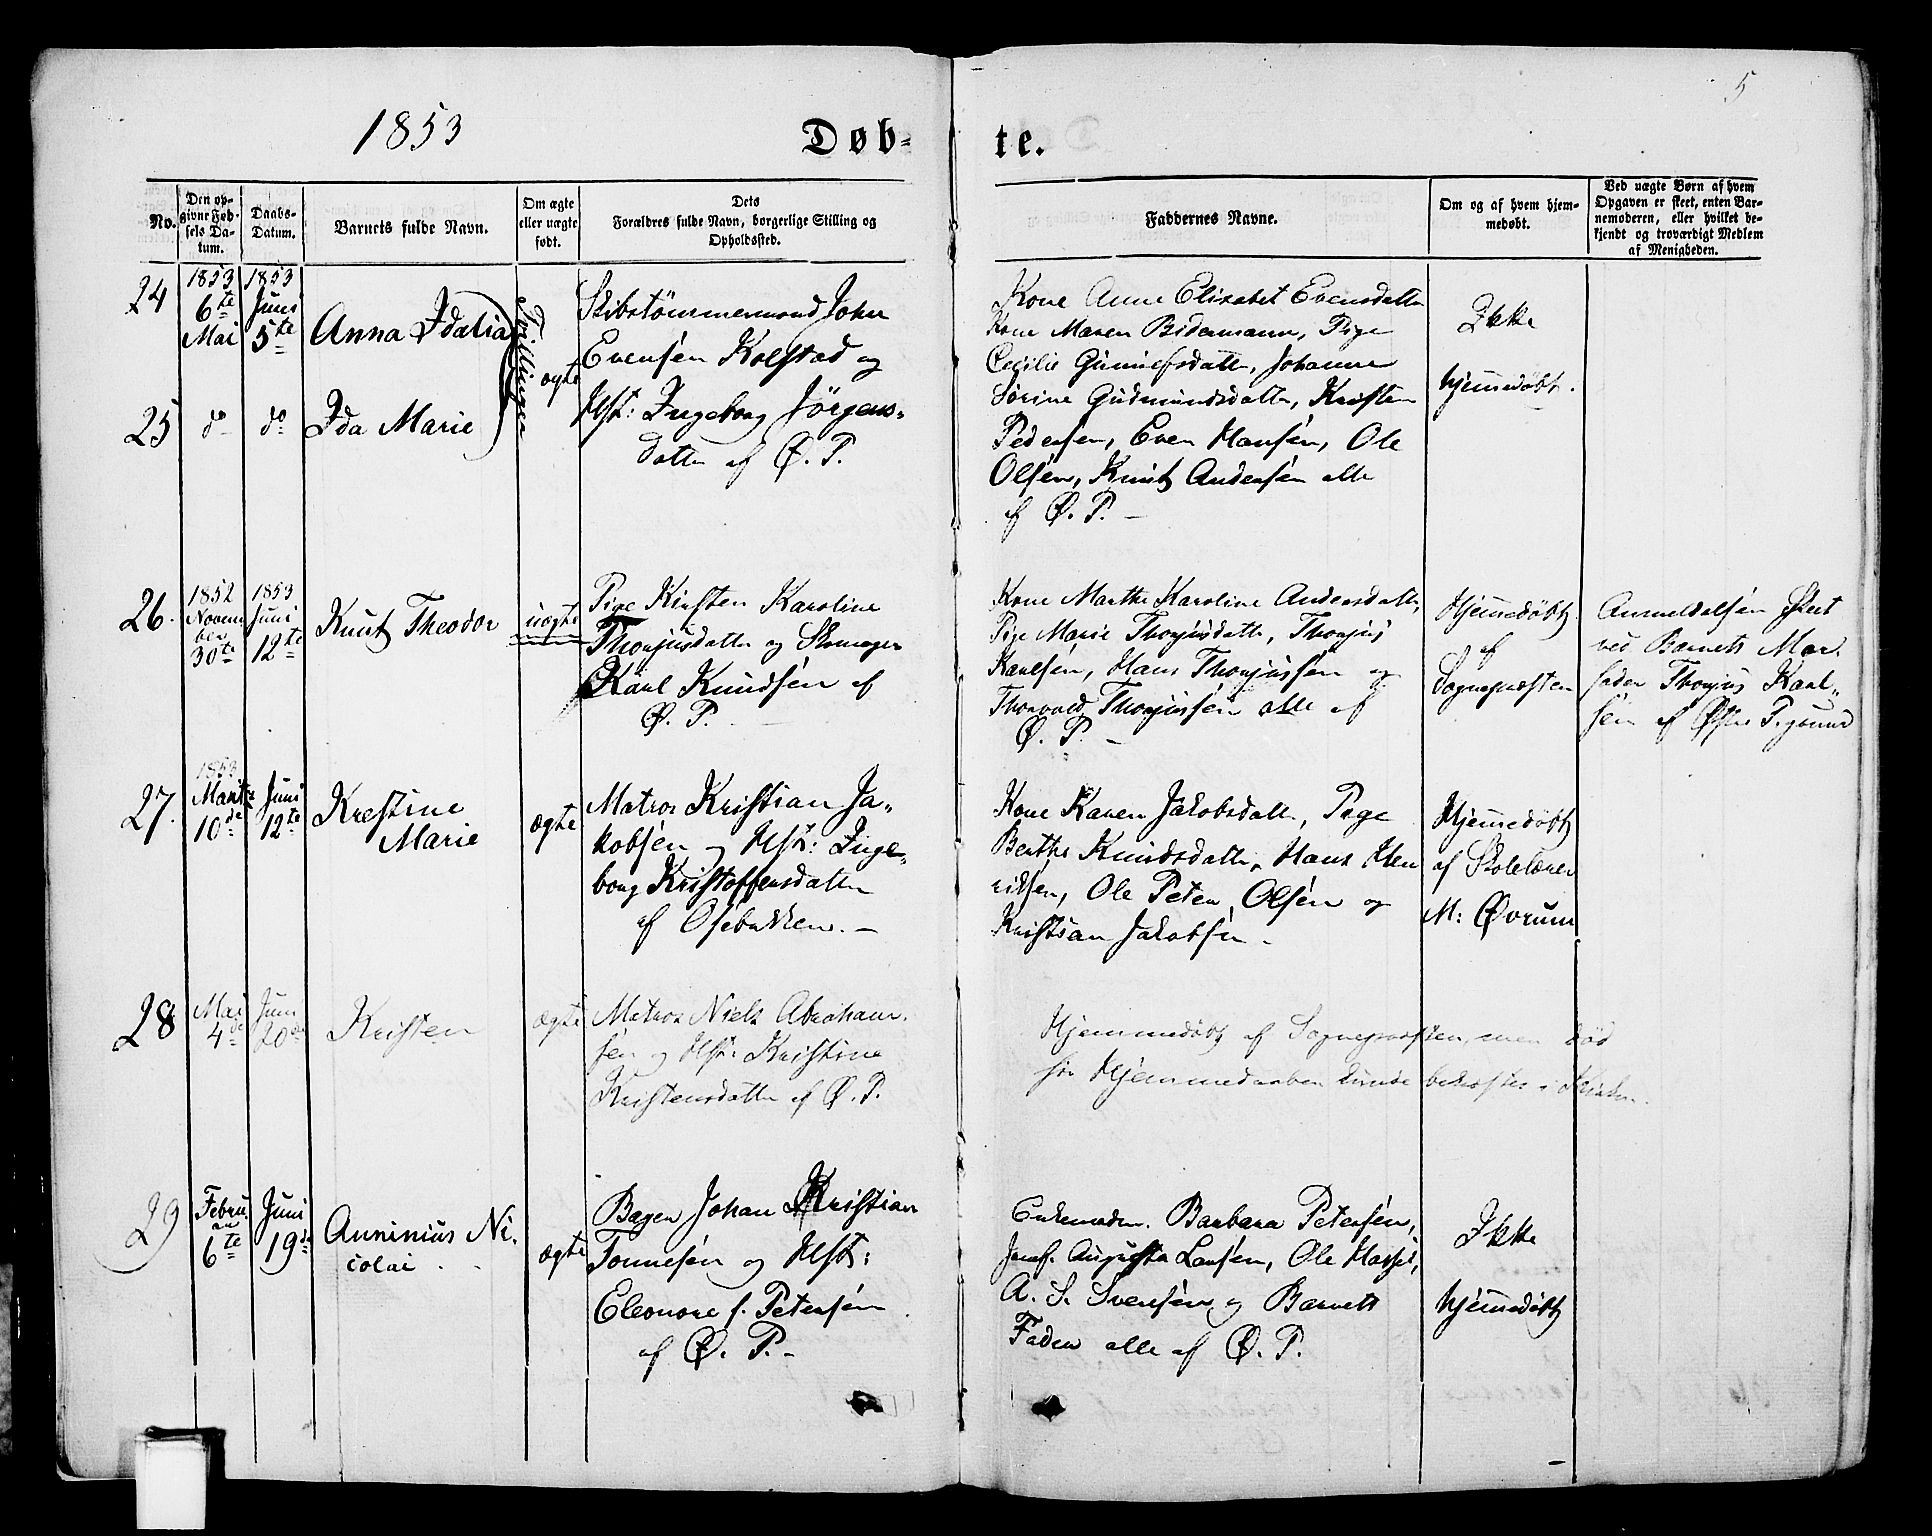 5
1853
Døb-
te.
No.
Den op-
givne Fød-
sels Da-
tum.
Daabs-
Datum.
Barnets fulde Navn.
Om ægte
eller uægte
født.
Dets
Forældres fulde Navn, borgerlige Stilling og
Opholdssted.
Faddernes Navne.
Om og af hvem hjem-
medøbt.
Ved uægte Børn af hvem
Opgaven er skeet, enten Bar-
nemoderen, eller hvilket be-
kjendt og troværdigt Medlem
af Menigheden.
24
1853
6te
Mai
1853
Juni
5te
Anna Idalia
Tvillinger
ægte
Skibstømmermand John
Evensén Kolstad og
Hst: Ingeborg Jörgens-
datter af Ø. P.
Kone Anne Elisabet Evensdatter
Kone Maren Bidermann, Pige
Cecilie Gunnlefsdatter, Johanne
Sørine Gudmundsdatter, Kristen
Pedersen, Even Hansén, Ole
Olsén, Knut Andersén alle
af Ø. P. -
Ikke
hjemmedøbt.
25
do
do
Ida Marie
26.
1852
Novem
ber
30te
1853
Juni
12te
Knut Theodor
uægte
Pige Kirsten Karoline
Thorjusdatter og Skomager
Karl Knudsén af
Ø. P. -
Kone Marthe Karoline Andersdatter,
Pige Marie Thorjusdatter, Thorjus
Karlsén, Hans Thorjussén og
Thorvald Thorjussén alle af
Ø. P. -
Hjemmedøbt
af
Sognepræsten
Anmeldelsén skeet
ved Barnets Mor-
fader Thorjus Karl-
sén af Østre Porsgrund
27.
1853
Marts
10de
Juni
12te
Krestine
Marie
ægte
Matros Kristian Ja-
kobsén og Hst: Inge-
borg Kristoffersdatter
af Osebakken. -
Kone Karen Jakobsdatter, Pige
Berthe Knudsdatter, Hans Hen
riksén, Ole Peter Olsén og
Kristian Jakobsén -
Hjemmedøbt
af Skolelærer
M: Øvrum
28
Mai
4de
Juni
20de
Kristen
ægte
Matros Niels Abraham-
sén og Hst: Kristine
Kristensdatter af Ø. P.
Hjemmedøbt af Sognepræsten, men død
før Hjemmedaaben kunde bekræftes i Kirken.
29
Febru
ar
6te
Juni
19de
Anninius Ni-
colai
ægte
Bager Johan Kristian
Tonnesén og Hst:
Eleonore f. Petersén
af Ø. P. -
Enkemadm. Barbara Petersén,
Jomf. Augusta Larsén, Ole
A. S. Svensén og Barnets
Fader alle af Ø. P.
Ikke
hjemmedøbt